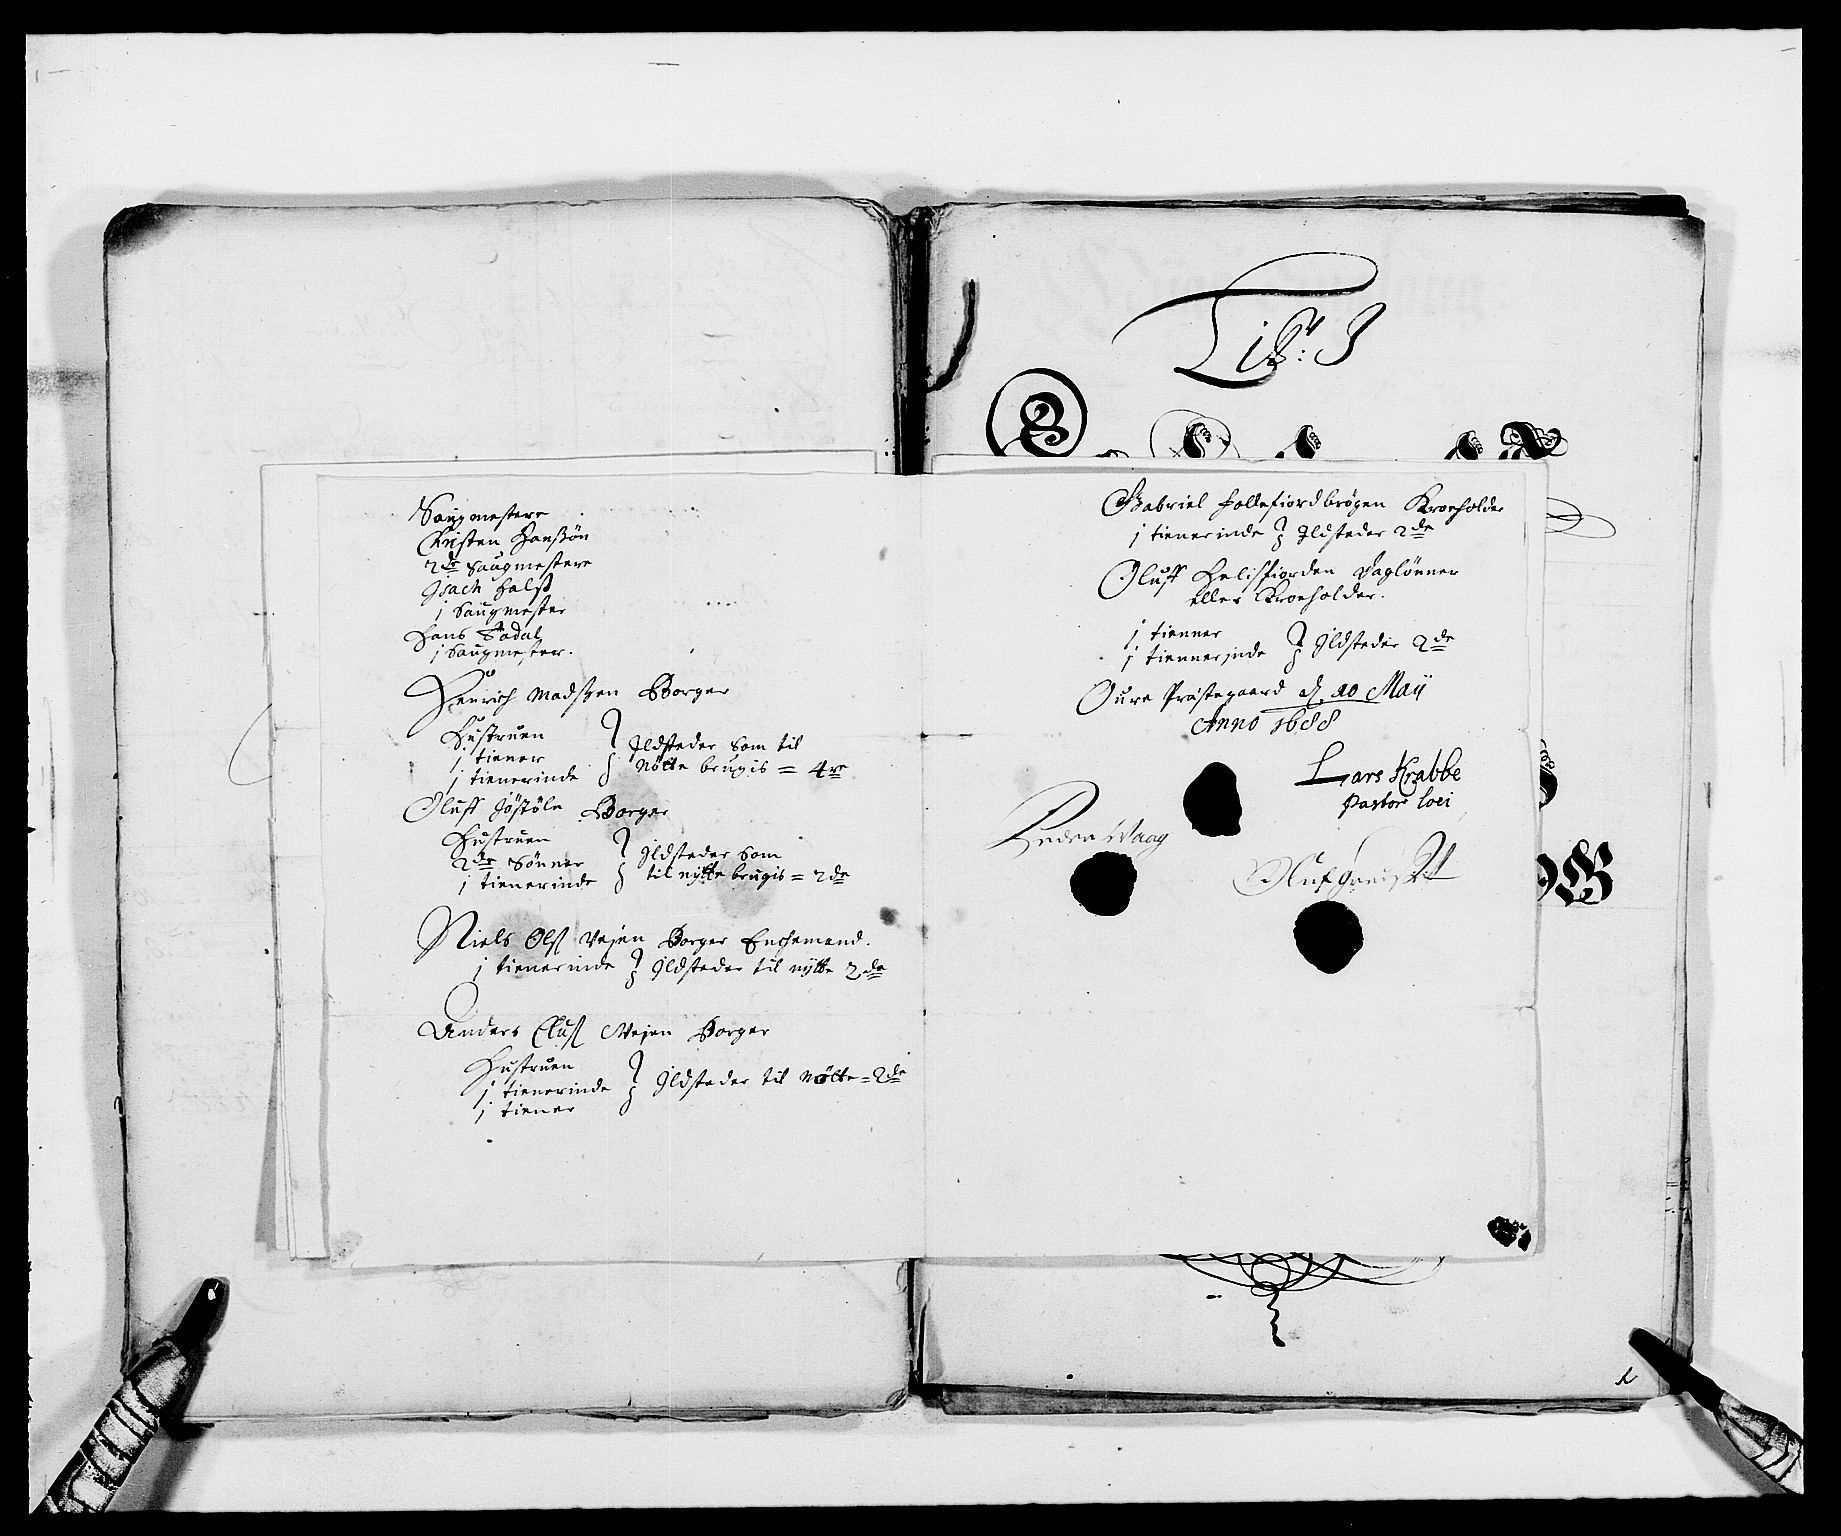 Saugmestere
Christen Hanssön
2de Saugmestere
Isach Falss
1 Saugmester
Hans Tadal
1 Saugmester.
Henrich Madssen Borger
Hustruen
1 tiener
1 tienerinde
Ildsteder som til
Nøtte brugis = 4re
Oluff Jöstöln Borger
Hustruen
2de Sönner
1 tienerinde
Ildsteder som
til nytte brugis = 2de
Niels Ols Vejen Borger Enchemand.
1 tienerinde Ildsteder til nytte 2de
Anders Clus Vejen Borger
Hustruen
1 tienerinde
1 tiener
Ildsteder til Nøtte = 2de
Lit: J
Gabriel Follefiordbrögen Kroeholder
1 tienerinde Ildsteder 2de
Oluff Helisfiorden Daglönner
eller Kroeholder.
1 tienner
1 tiennerinde
Ildsteder 2de
Oure Præstegaard d. 20 Maij
Anno 1688
Lars Krabbe
Pastor loci
Peder Waag
Oluf